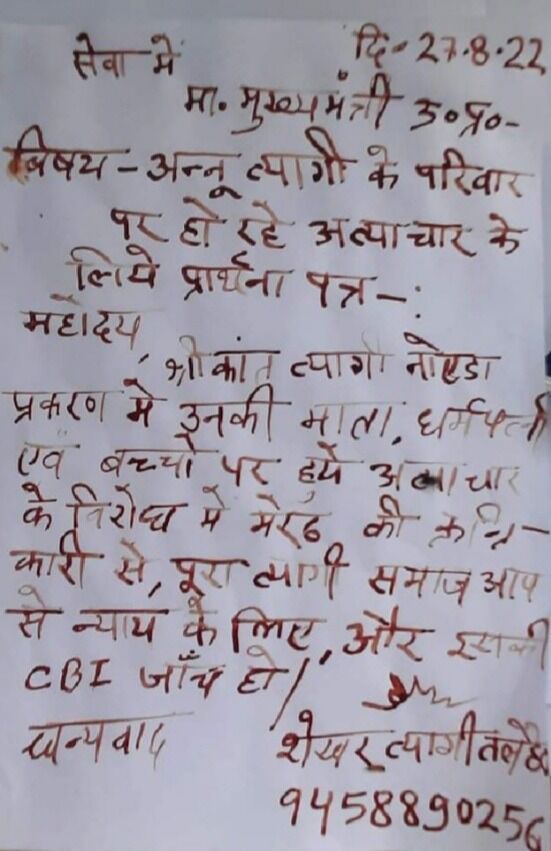 दि॰ 27.8.22
सेवा में
मा. मुख्यमंत्री उ०प्र०-
विषय - अन्नू त्यागी के परिवार
पर हो रहे अत्याचार के
लिये प्रार्थना पत्र -:
महोदय,
श्रीकांत त्यागी नोएडा
प्रकरण मे उनकी माता, धर्मपत्नी
एवं बच्चो पर हुये अत्याचार
के विरोध मे मेरठ की क्रान्ति-
कारी से, पूरा त्यागी समाज आप
से न्याय के लिए, और इसकी
CBI जाँच हो/
धन्यवाद
शेखर त्यागी
9458890256